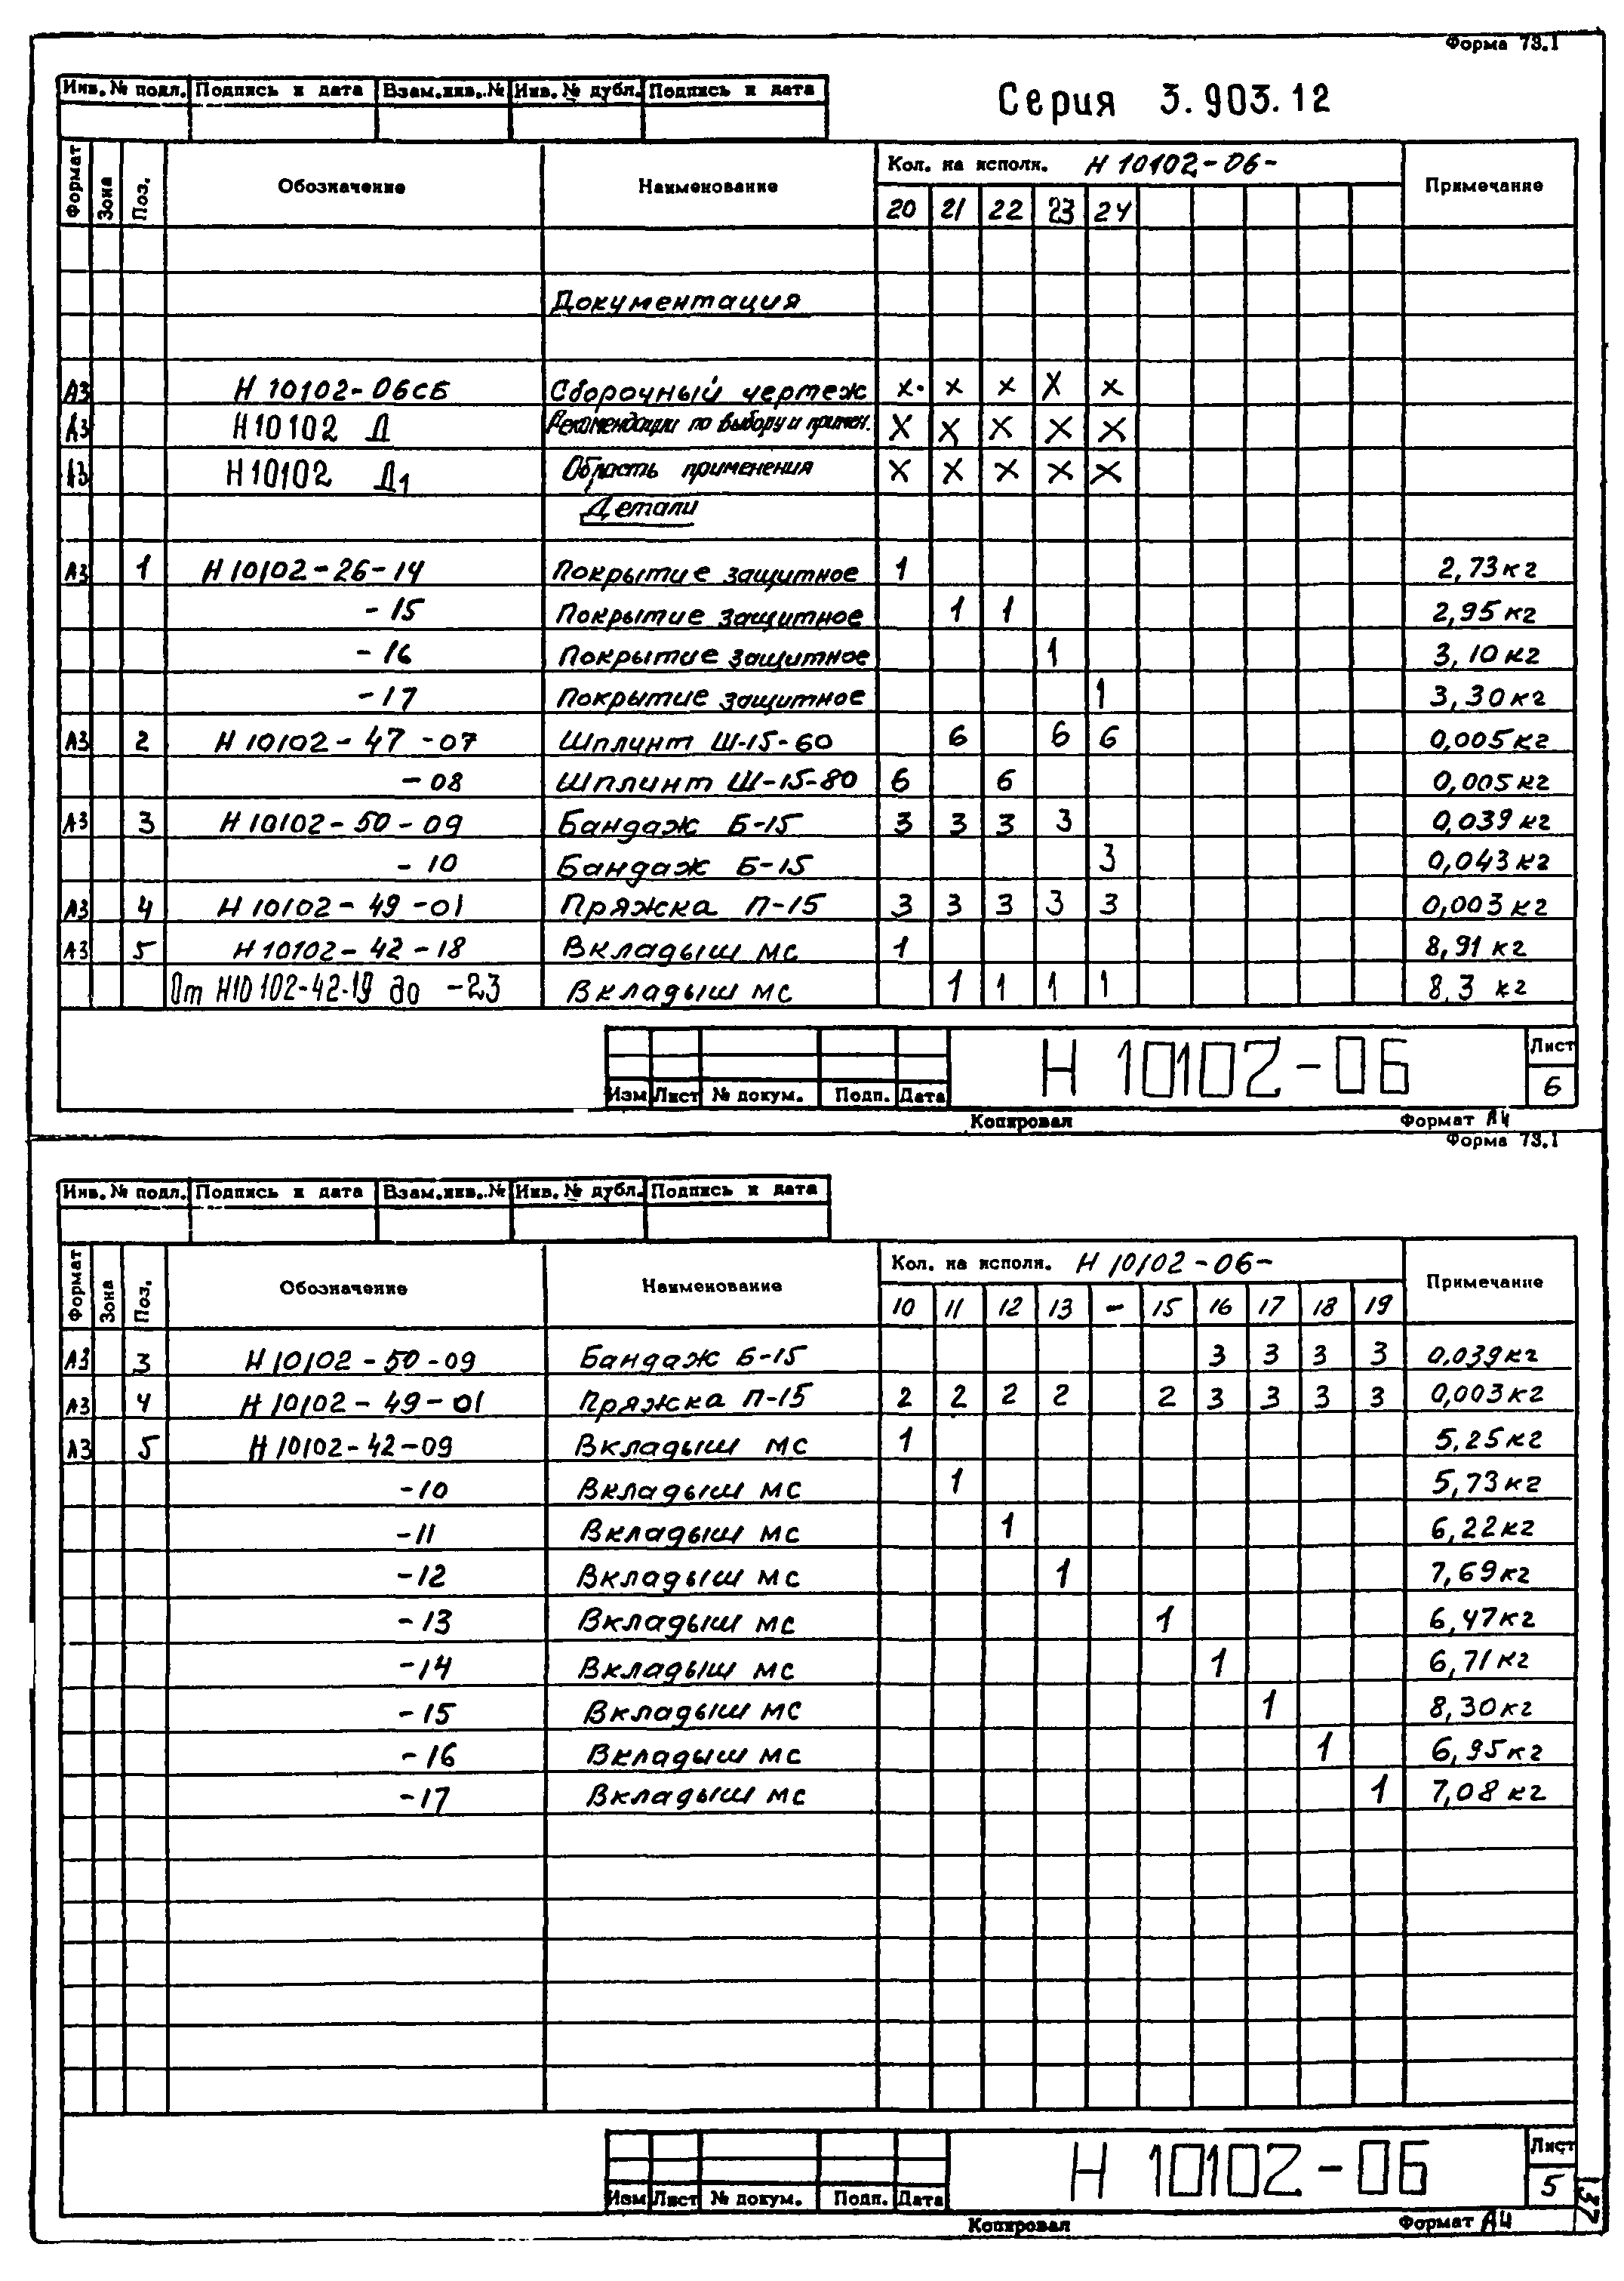 Форма 73.1
Инв. № подл. Подпись и дата Взам.инв.№ Инв. № дубл. Подпись и дата
Серия 3.903.12
Формат Зона Поз. Обозначение Наименование Кол. на исполн. Н 10102-06- Примечание
20 21 22 23 24
Документация
А3 Н 10102-06СБ Сборочный чертеж х х х х х
А3 Н10102 Д Рекомендации по выбору и примен. х х х х х
А3 Н10102 Д1 Область применения х х х х х
Детали
А3 1 Н 10102-26-14 Покрытие защитное 1 2,73кг
-15 Покрытие защитное 1 1 2,95кг
-16 Покрытие защитное 1 3,10кг
-17 Покрытие защитное 1 3,30кг
А3 2 Н 10102-47-07 Шплинт Ш-15-60 6 6 6 0,005кг
-08 Шплинт Ш-15-80 6 6 0,005кг
А3 3 Н 10102-50-09 Бандаж Б-15 3 3 3 3 0,039кг
-10 Бандаж Б-15 3 0,043кг
А3 4 Н 10102-49-01 Пряжка П-15 3 3 3 3 3 0,003кг
А3 5 Н 10102-42-18 Вкладыш МС 1 8,91кг
От Н10102-42-19 до -23 Вкладыш МС 1 1 1 1 8.3 кг
Изм Лист № докум. Подп. Дата Н 10102-06 Лист 6
Копировал Формат А4
Форма 73.1
Инв. № подл. Подпись и дата Взам.инв.№ Инв. № дубл. Подпись и дата
Формат Зона Поз. Обозначение Наименование Кол. на исполн. Н 10102-06- Примечание
10 11 12 13 - 15 16 17 18 19
А3 3 Н 10102-50-09 Бандаж Б-15 3 3 3 3 0,039кг
А3 4 Н 10102-49-01 Пряжка П-15 2 2 2 2 2 3 3 3 3 0,003кг
А3 5 Н 10102-42-09 Вкладыш МС 1 5,25кг
-10 Вкладыш МС 1 5,73кг
-11 Вкладыш МС 1 6,22кг
-12 Вкладыш МС 1 7,69кг
-13 Вкладыш МС 1 6,47кг
-14 Вкладыш МС 1 6,71кг
-15 Вкладыш МС 1 8,30кг
-16 Вкладыш МС 1 6,95кг
-17 Вкладыш МС 1 7,08кг
Изм Лист № докум. Подп. Дата Н 10102-06 Лист 5
Копировал Формат А4
137